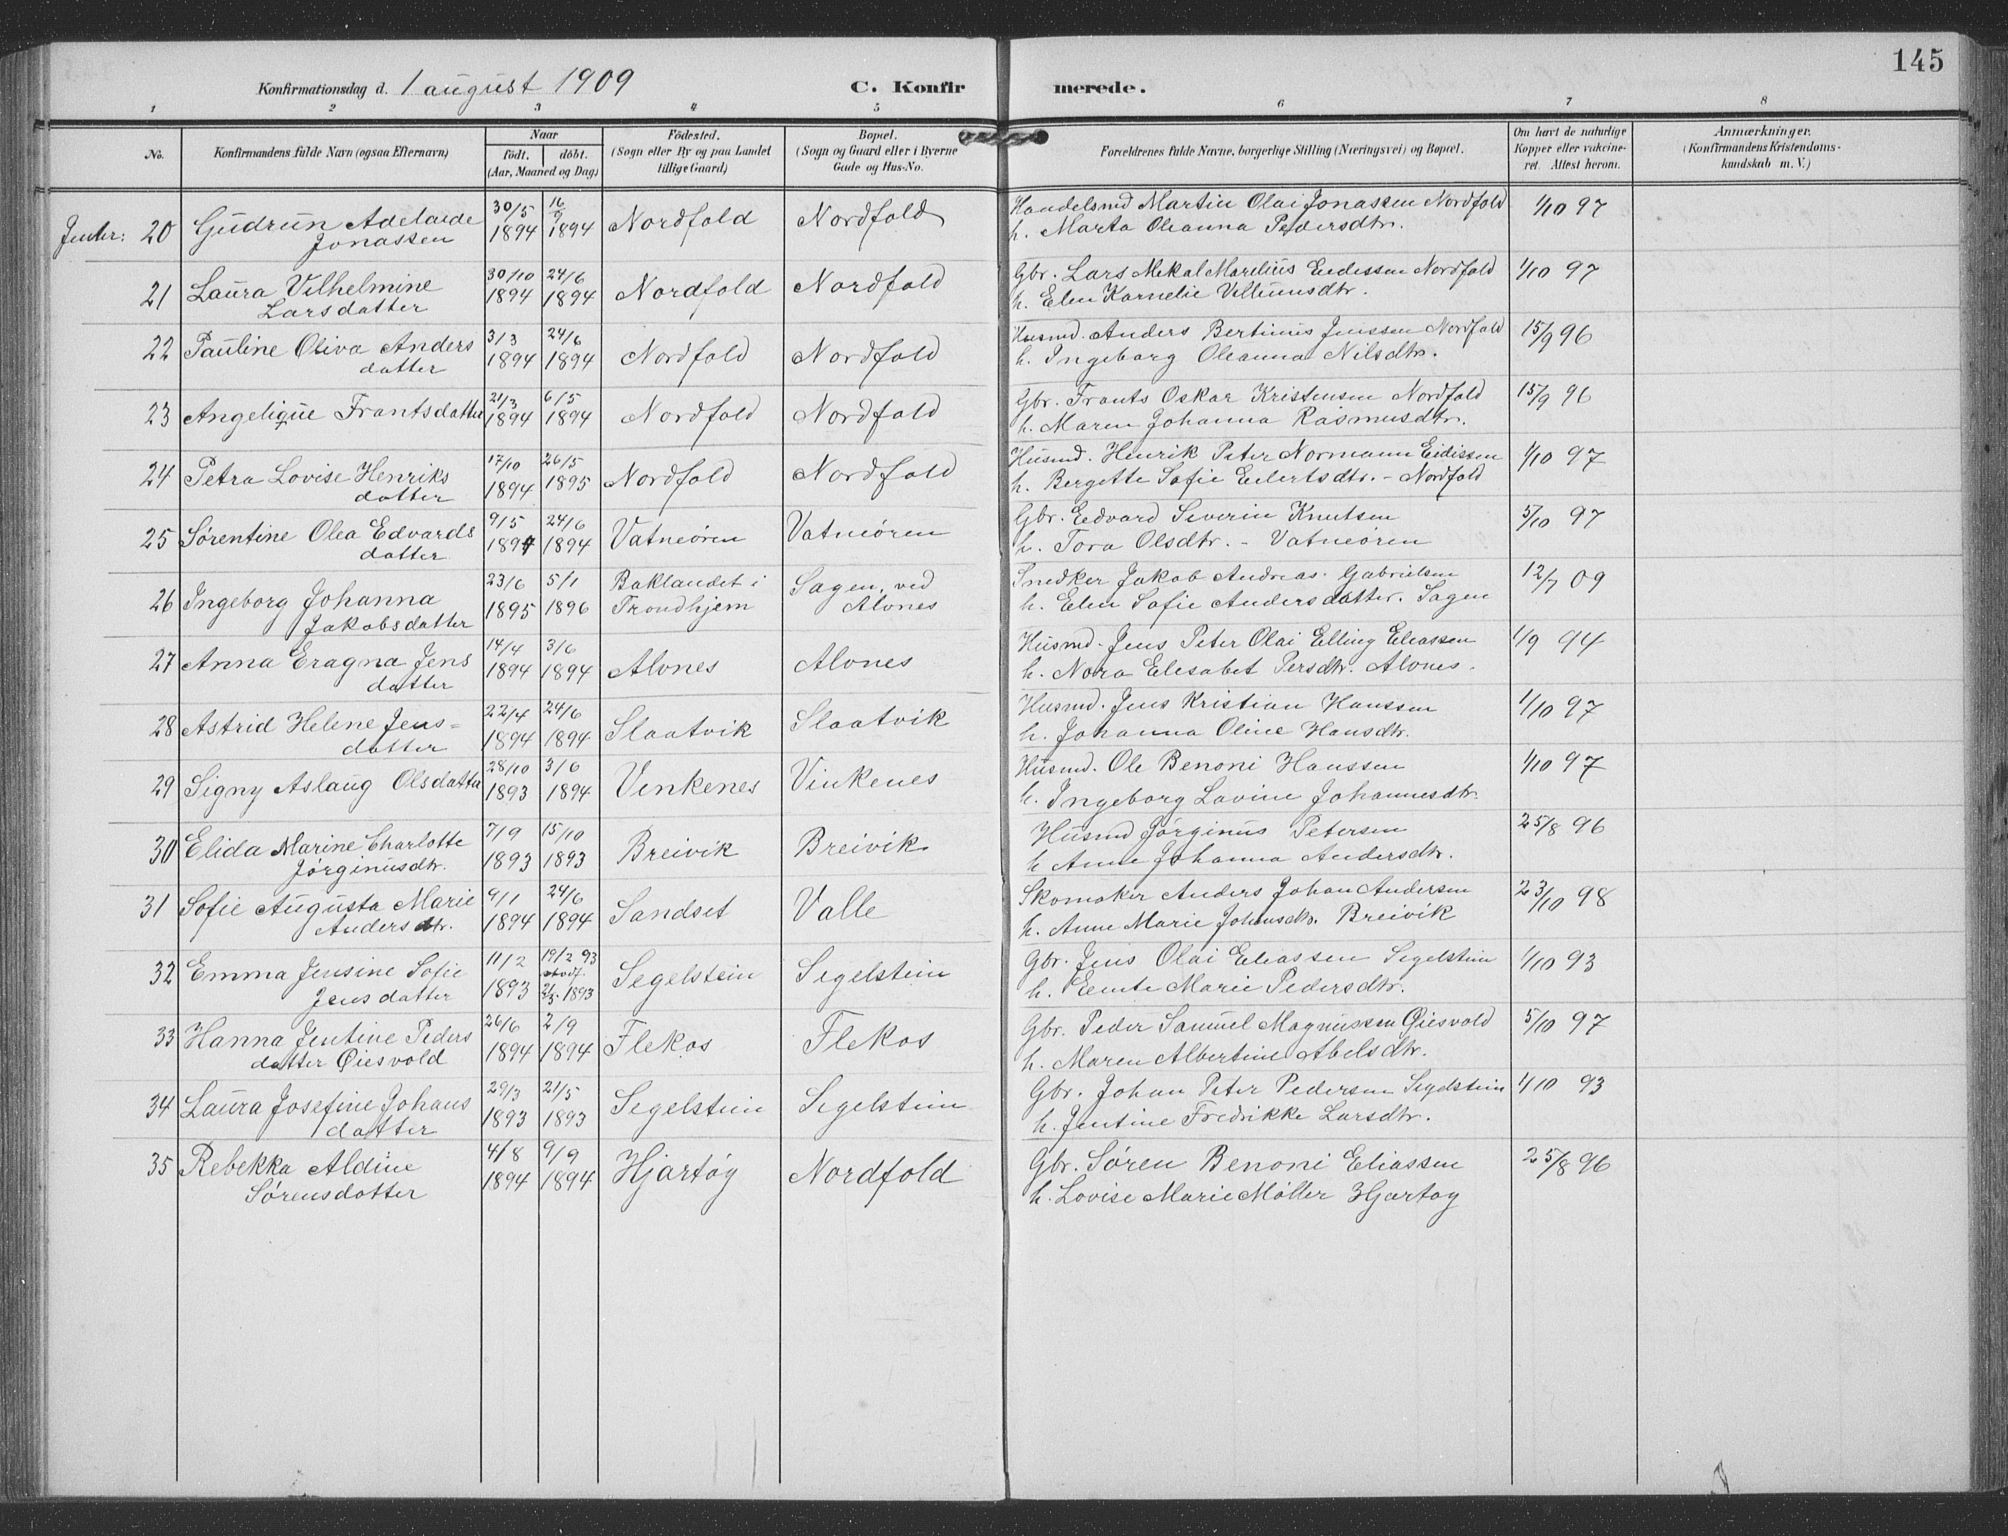 145
Konfirmationsdag d. 1 august 1909 C. Konfirmerede.
1 2 3 4 5 6 7 8
No.
Konfirmandens fulde Navn (ogsaa Efternavn)
Naar
født. døbt.
(Aar, Maaned og Dag)
Fødested.
(Sogn eller By og paa Landet
tillige Gaard)
Bopæl.
(Sogn og Gaard eller i Byerne
Gade og Hus-No.
Forældrenes fulde Navne, borgerlige Stilling (Næringsvei) og Bopæl.
Om havt de naturlige
Kopper eller vaksine-
ret. Attest herom.
Anmærkninger.
(Konfirmandens Kristendoms-
kundskab m. V.)
Jenter: 20 Gudrun Adelaide 30/5 16/9 Nordfold Nordfold Handelsmd Martin Olai Jonassen Nordfold 1/10 97
Jonassen 1894 1894 h. Marta Oleanna Pedersdtr.
21 Laura Vilhelmine 30/10 24/6 Nordfold Nordfold Gbr. Lars Mekal Marelius Eedissen Nordfold 1/10 97
Larsdatter 1894 1894 h. Elen Kornelie Villumsdtr.
22 Pauline Oliva Anders 3/3 24/6 Nordfold Nordfold Husmd. Anders Bertinus Jenssen Nordfold 15/9 96
datter 1894 1894 h. Ingeborg Oleanna Nilsdtr.
23 Angelique Frantsdatter 21/3 6/5 Nordfold Nordfold Gbr. Frants Oskar Kristensen Nordfold 15/9 96
1894 1894 h. Maren Johanna Rasmusdtr.
24 Petra Lovise Henriks 17/10 26/5 Nordfold Nordfold Husmd. Henrik Peter Normann Eidissen 1/10 97
datter 1894 1895 h. Bergette Sofie Eilertsdtr. - Nordfold
25 Sørentine Olea Edvards 9/5 24/6 Vatneøren Vatneøren Gbr. Eedvard Severin Knutsen 5/10 97
datter 1894 1894 h. Tora Olsdtr. - Vatneøren
26 Ingeborg Johanna 23/6 5/1 Baklandet i Sagen, ved Snedker Jakob Andreas Gabrielsen 12/7 09
Jakobsdatter 1895 1896 Trondhjem Alvnes h. Elen Sofie Andersdatter. Sagen
27 Anna Eragna Jens 14/4 3/6 Alvnes Alvnes Husmd. Jens Peter Olai Elling Eliassen 1/9 94
datter 1894 1894 h. Nora Elesabet Persdtr. Alvnes.
28 Astrid Helene Jens- 22/4 24/6 Slaatvik Slaatvik Husmd. Jens Kristian Hanssen 1/10 97
datter 1894 1894 h. Johanna Oline Hansdtr.
29 Signy Aslaug Olsdatter 28/10 3/6 Venkenes Vinkenes Husmd. Ole Benoni Hanssen 1/10 97
1893 1894 h. Ingeborg Lovine Johannesdtr.
30 Elida Marine Charlotte 7/9 15/10 Breivik Breivik Husmd Jørginus Petersen 25/8 96
Jørginusdtr. 1893 1893 h Anne Johanna Andersdtr.
31 Sofie Augusta Marie 9/1 24/6 Sandset Valle Skomaker Anders Johan Andersen 23/10 98
Andersdtr. 1894 1894 h. Anne Marie Johansdtr. Breivik
32 Emma Jensine Sofie 11/2 19/2 93 Segelstein Segelstein Gbr. Jens Olai Eliassen Segelstein 1/10 93
Jensdatter 1893 21/5 1893 h. Eente Marie Pedersdtr.
33 Hanna Jentine Peders 26/6 2/9 Flekos Flekos Gbr. Peder Samuel Magnussen Øiesvold 5/10 97
datter Øiesvold 1894 1894 h. Maren Albertine Abelsdtr.
34 Laura Josefine Johans 29/3 21/5 Segelstein Segelstein Gbr. Johan Peter Pedersen Segelstein 1/10 93
datter 1893 1893 h. Jentine Fredrikke Larsdtr.
35 Rebekka Aldine 4/8 9/9 Hjartøy Nordfold Gbr. Søren Benoni Eliassen 25/8 96
Sørensdatter 1894 1894 h. Lovise Marie Møller Hjartøy